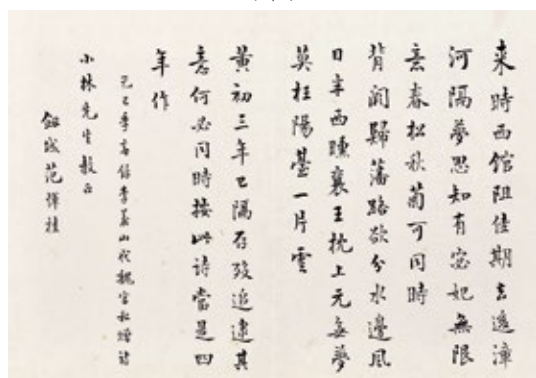 來時西館阻佳期去後漳
河隔夢思知有宓妃無限
意春松秋菊可同時
背闕歸藩路欲分水邊風
日半西曛襄王枕上元無夢
莫枉陽臺一片雲
黄初三年已隔存歿追逮其
意何必同時按此诗當是四
年作
己巳季夏錄李義山代魏宮私贈詩
小林先生教正
城范